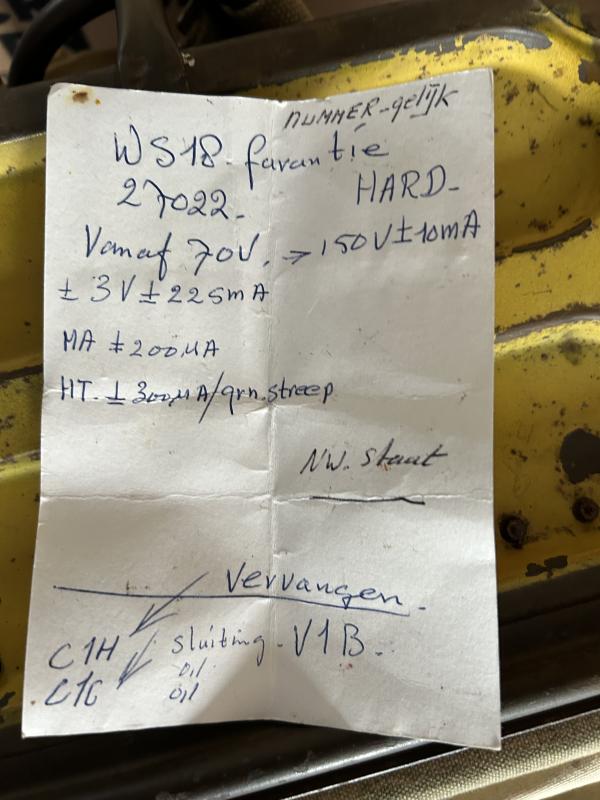 NUMMER-gelijk
WS18. farantie
27022. HARD-
Vanaf 70V. → 150V ± 10mA
± 3V ± 225mA
MA ± 200µA
HT. ± 300µA/grn.streep
NW. Staat
Vervangen.
C1H sluiting. V1B.
0,1
C1G 0,1